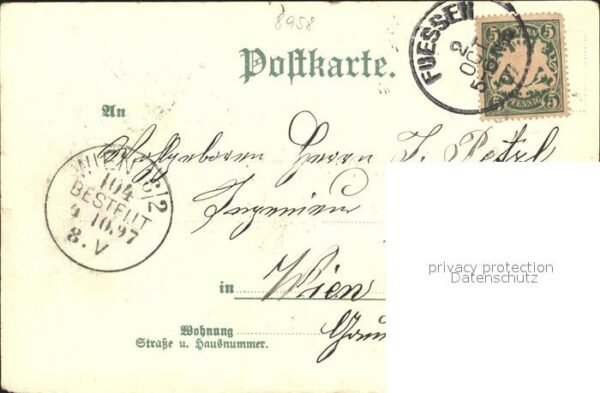 8958
FUESSEN
2
OCT
5
5
PFENNIG
5
Postkarte.
An
Wohlgeboren Herrn J. Petzl
Ingenieur
WIEN 18/2
104
BESTELLT
4.10.97
8.V
in Wien
Wohnung
Straße u. Hausnummer.
privacy protection
Datenschutz